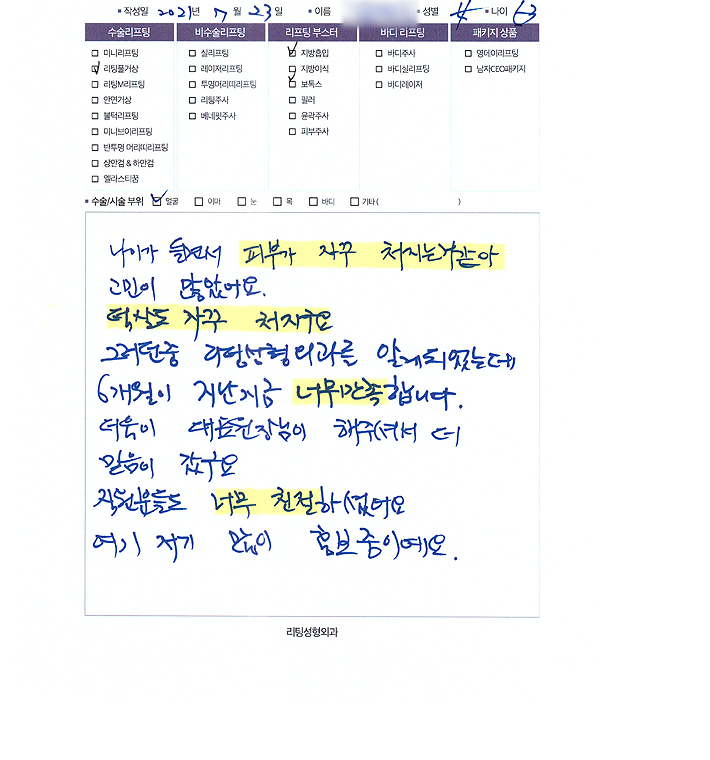 작성일 2021년 7월 23일 이름 성별 나이 63
수술리프팅 비수술리프팅 리프팅 부스터 바디 리프팅 패키지 상품
미니리프팅 실리프팅 지방흡입 바디주사 영데이리프팅
리팅풀거상 레이저리프팅 지방이식 바디실리프팅 남자CEO패키지
리팅M리프팅 투명머리띠리프팅 보톡스 바디레이저
안면거상 리팅주사 필러
불턱리프팅 베네핏주사 윤곽주사
미니브이리프팅 피부주사
반투명 머리띠리프팅
상안검 & 하안검
엘라스티꿈
수술/시술 부위 얼굴 이마 눈 목 바디 기타 ( )
나이가 들면서 피부가 자꾸 처지는거같아
고민이 많았어요.
턱살도 자꾸 처지구요
그러던중 리팅성형외과를 알게되었는데
6개월이 지난지금 너무만족합니다.
더욱이 대표원장님이 해주셔서 더
믿음이 갔구요
직원분들도 너무 친절하셨어요
여기 저기 많이 홍보중이예요.
리팅성형외과